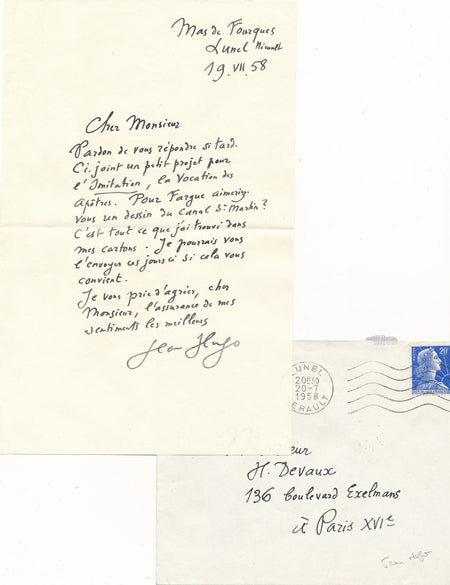 Mas de Fourques
Lunel Hérault
19.VII.58
Cher Monsieur
Pardon de vous répondre si tard.
Ci-joint un petit projet pour
l'Imitation, la vocation des
Apôtres. Pour Fargue aimeriez-
vous un dessin du Canal St Martin?
C'est tout ce que j'ai trouvé dans
mes cartons. Je pourrais vous
l'envoyer ces jours ci si cela vous
convient.
Je vous prie d'agréer, cher
Monsieur, l'assurance de mes
sentiments les meilleurs
Jean Hugo
LUNEL
20H30
20-7
1958
HERAULT
20F
H. Devaux
136 boulevard Exelmans
à Paris XVIe
Jean Hugo